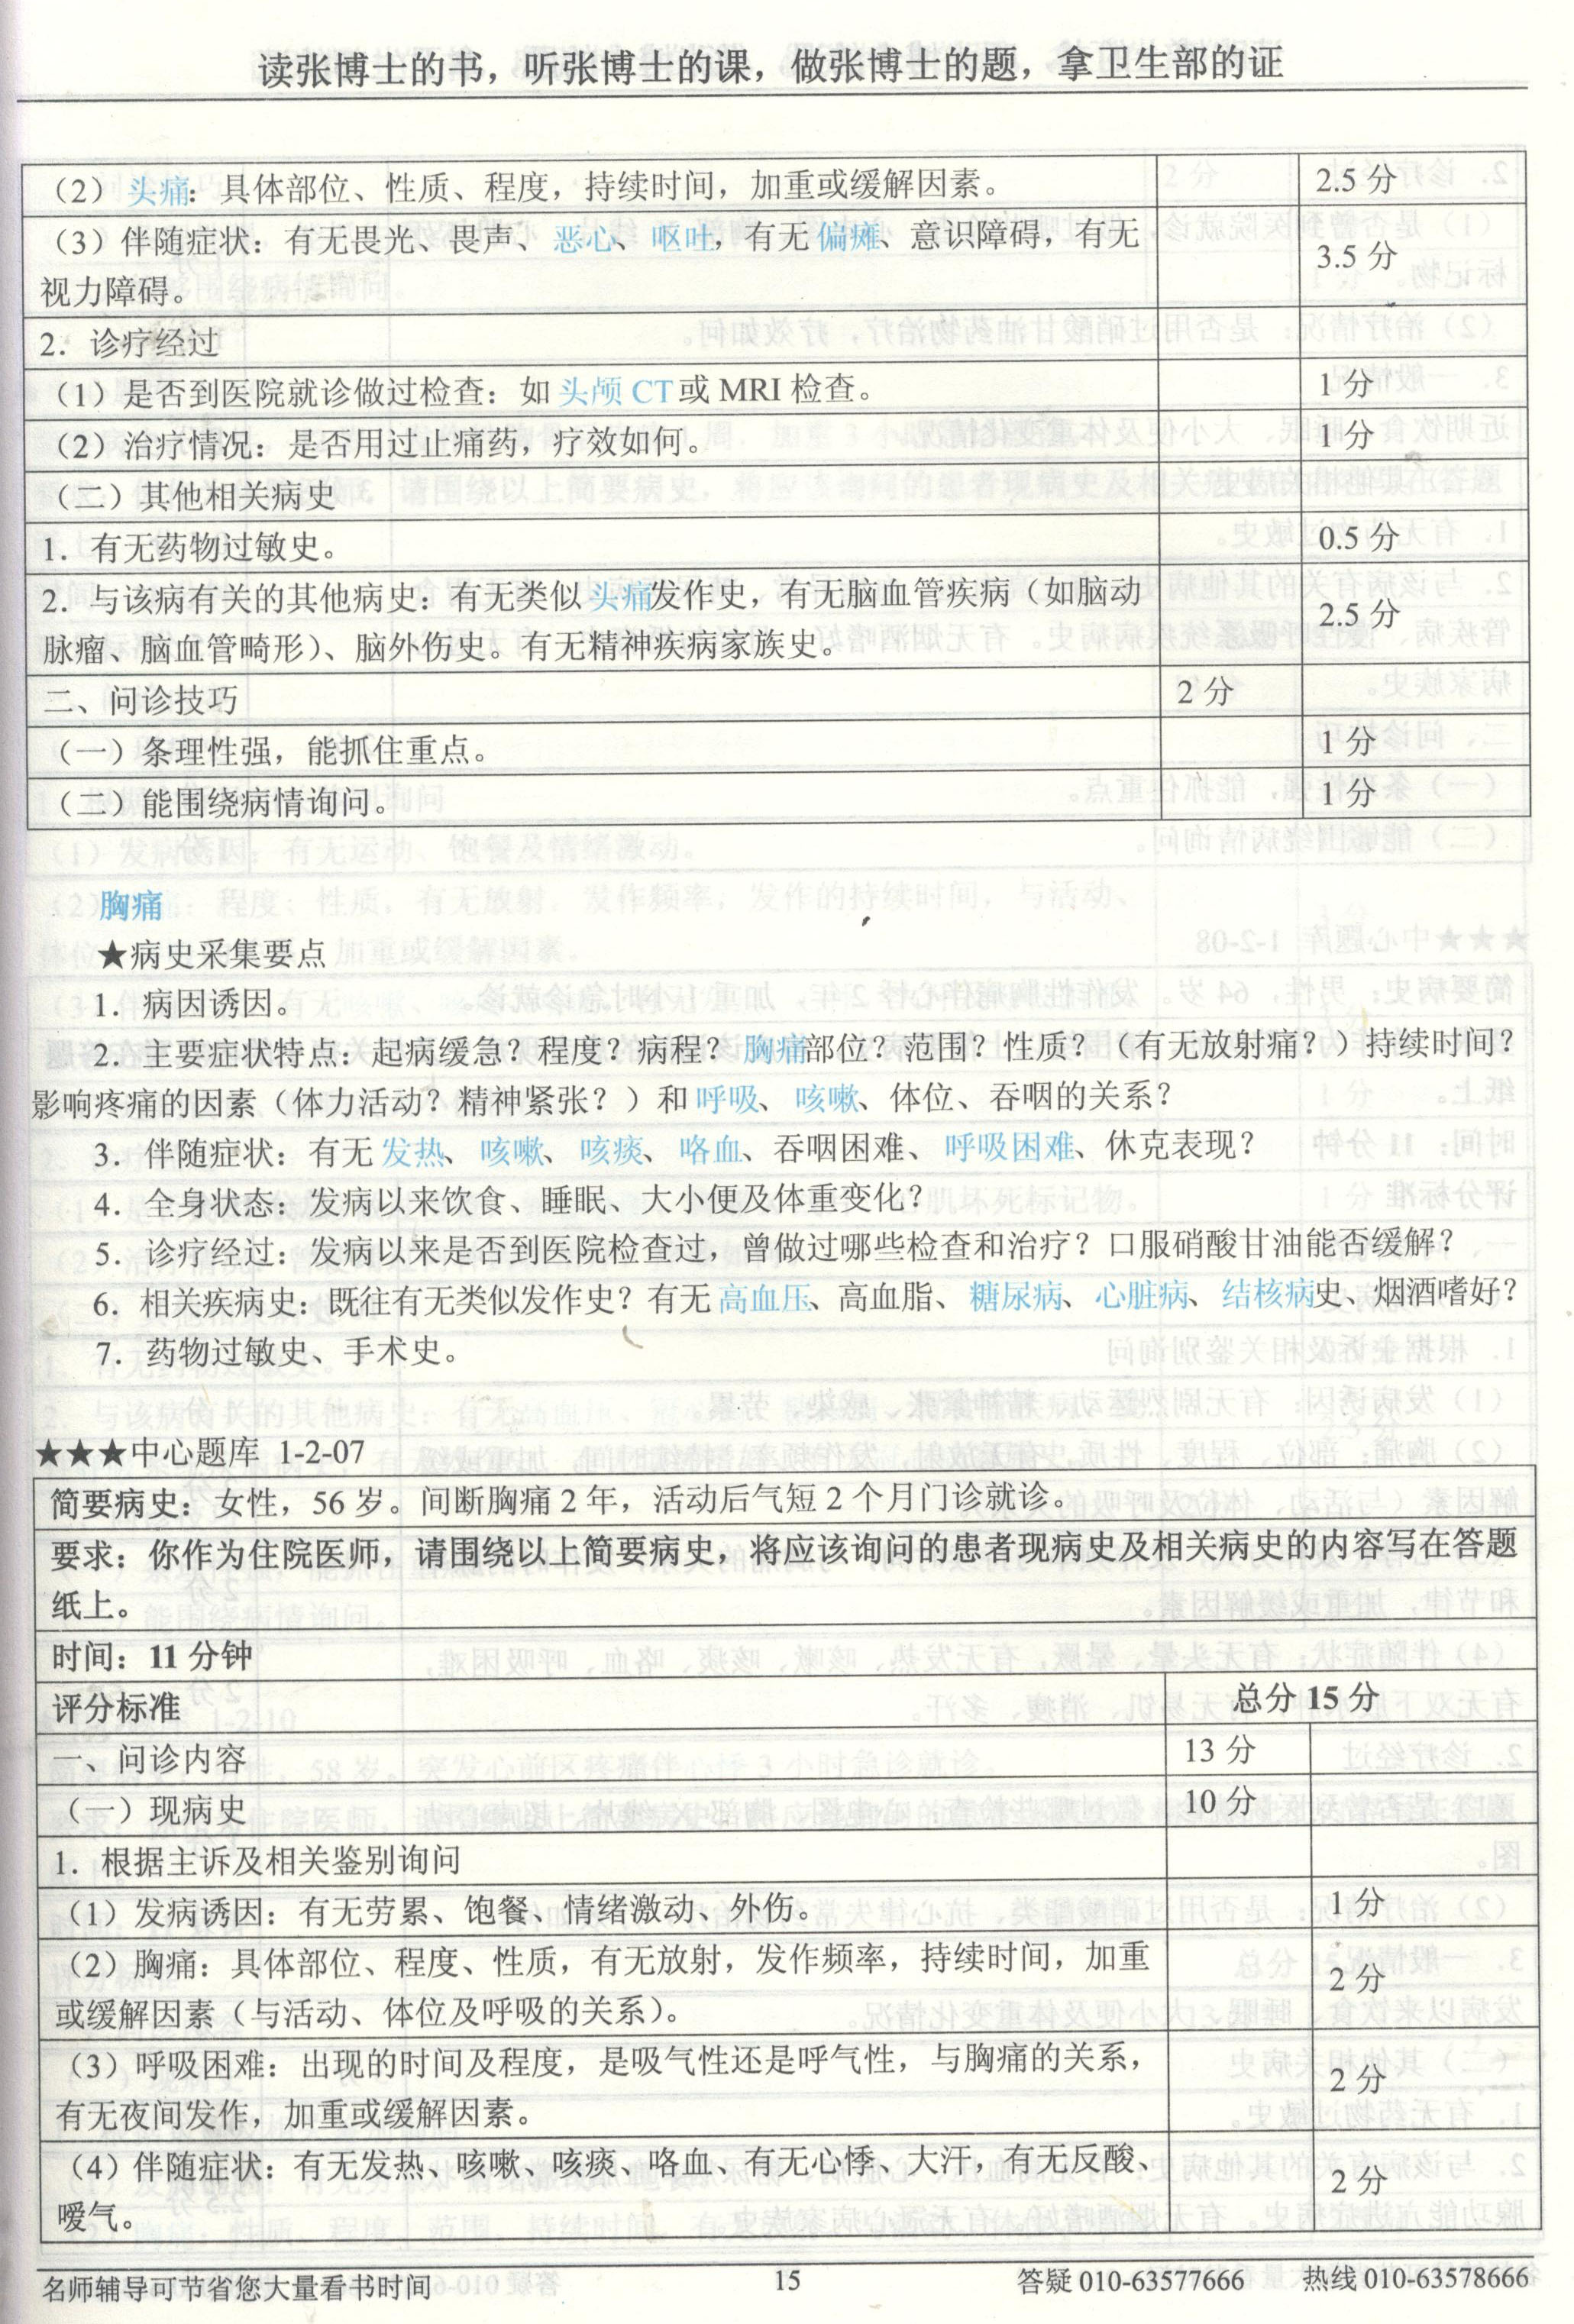 读张博士的书，听张博士的课，做张博士的题，拿卫生部的证
（2）头痛：具体部位、性质、程度，持续时间，加重或缓解因素。 2.5 分
（3）伴随症状：有无畏光、畏声、恶心、呕吐，有无偏瘫、意识障碍，有无
视力障碍。 3.5 分
2．诊疗经过
（1）是否到医院就诊做过检查：如头颅 CT 或 MRI 检查。 1 分
（2）治疗情况：是否用过止痛药，疗效如何。 1 分
（二）其他相关病史
1．有无药物过敏史。 0.5 分
2．与该病有关的其他病史：有无类似头痛发作史，有无脑血管疾病（如脑动
脉瘤、脑血管畸形）、脑外伤史。有无精神疾病家族史。 2.5 分
二、问诊技巧 2 分
（一）条理性强，能抓住重点。 1 分
（二）能围绕病情询问。 1 分
胸痛
★病史采集要点
1．病因诱因。
2．主要症状特点：起病缓急？程度？病程？胸痛部位？范围？性质？（有无放射痛？）持续时间？
影响疼痛的因素（体力活动？精神紧张？）和呼吸、咳嗽、体位、吞咽的关系？
3．伴随症状：有无发热、咳嗽、咳痰、咯血、吞咽困难、呼吸困难、休克表现？
4．全身状态：发病以来饮食、睡眠、大小便及体重变化？
5．诊疗经过：发病以来是否到医院检查过，曾做过哪些检查和治疗？口服硝酸甘油能否缓解？
6．相关疾病史：既往有无类似发作史？有无高血压、高血脂、糖尿病、心脏病、结核病史、烟酒嗜好？
7．药物过敏史、手术史。
★★★中心题库 1-2-07
简要病史：女性，56 岁。间断胸痛 2 年，活动后气短 2 个月门诊就诊。
要求：你作为住院医师，请围绕以上简要病史，将应该询问的患者现病史及相关病史的内容写在答题
纸上。
时间：11 分钟
评分标准 总分 15 分
一、问诊内容 13 分
（一）现病史 10 分
1．根据主诉及相关鉴别询问
（1）发病诱因：有无劳累、饱餐、情绪激动、外伤。 1 分
（2）胸痛：具体部位、程度、性质，有无放射，发作频率，持续时间，加重
或缓解因素（与活动、体位及呼吸的关系）。 2 分
（3）呼吸困难：出现的时间及程度，是吸气性还是呼气性，与胸痛的关系，
有无夜间发作，加重或缓解因素。 2 分
（4）伴随症状：有无发热、咳嗽、咳痰、咯血、有无心悸、大汗，有无反酸、
嗳气。 2 分
名师辅导可节省您大量看书时间 15 答疑 010-63577666 热线 010-63578666